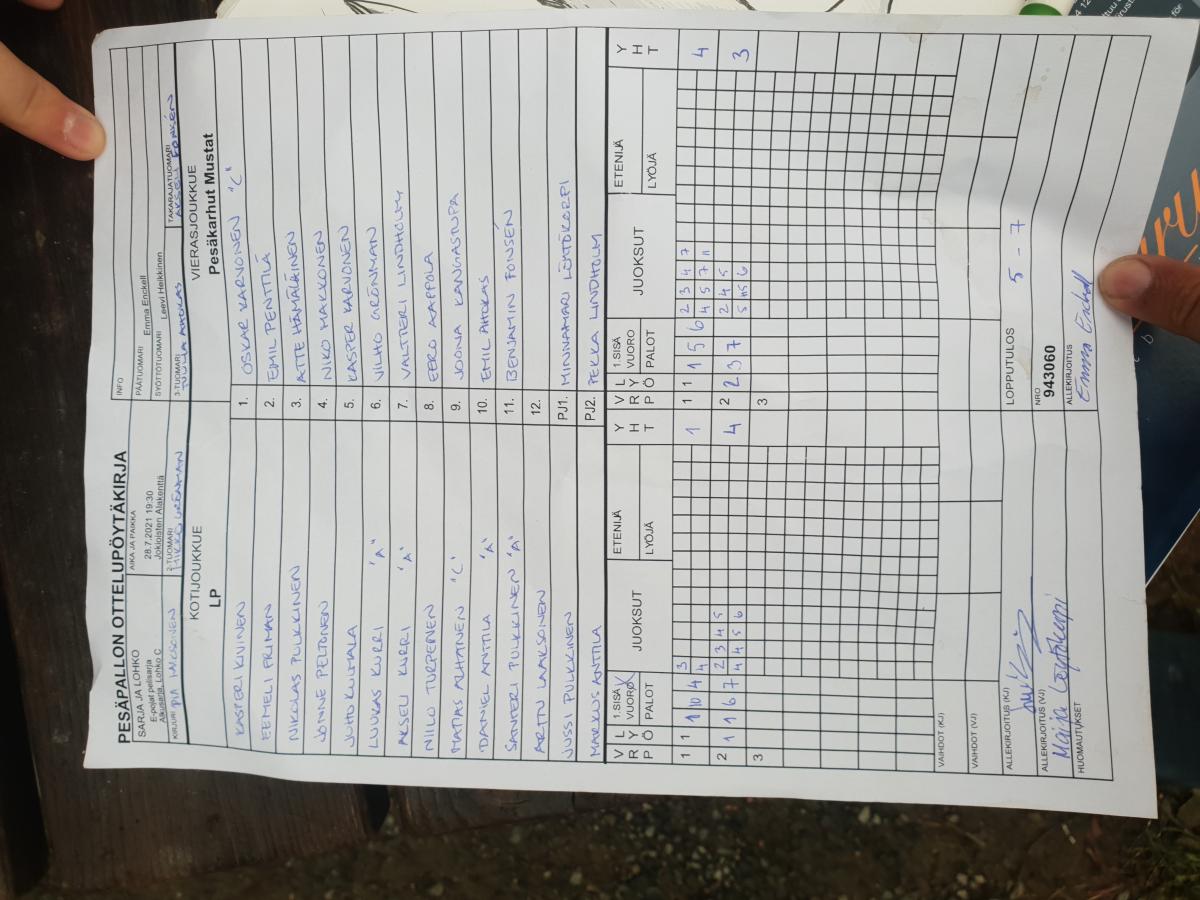 PESÄPALLON OTTELUPÖYTÄKIRJA
SARJA JA LOHKO
E-pojat pelisarja
Alkusarja, Lohko C
AIKA JA PAIKKA
28.7.2021 19:30
Jokioisten Alakenttä
INFO
PÄÄTUOMARI Emma Enckell
SYÖTTÖTUOMARI Leevi Heikkinen
KIRJURI PIA
2-TUOMARI MIKKO GRÖNMAN
3-TUOMARI TUULA AHOKAS
TAKARAJATUOMARI AKSELI
KOTIJOUKKUE VIERASJOUKKUE
LP Pesäkarhut Mustat
KASPERI KIVINEN 1. OSKAR KARVONEN "C"
EEMELI FRIMAN 2. EMIL PENTTILÄ
NIKOLAS PULKKINEN 3. ATTE HÄMÄLÄINEN
JONNE PELTONEN 4. NIKO MAKKONEN
JUHO KUJALA 5. KASPER KARVONEN
LUUKAS KURRI "A" 6. VILHO GRÖNMAN
AKSELI KURRI "A" 7. VALTTERI LINDHOLM
NIILO TURPEINEN 8. EERO AAPPOLA
MATIAS ALHAINEN "C" 9. JOONA KANGASTUPA
DANIEL ANTTILA "A" 10. EMIL AHOKAS
SANTERI PULKKINEN "A" 11. BENJAMIN FONSÉN
ARTTU LAAKSONEN 12.
JUSSI PULKKINEN PJ1. MINNAMARI LÖHTÖKORPI
MARKUS ANTTILA PJ2. PEKKA LINDHOLM
V R P L Y Ö 1.SISÄ VUORO PALOT JUOKSUT ETENIJÄ LYÖJÄ Y H T V R P L Y Ö 1.SISÄ VUORO PALOT JUOKSUT ETENIJÄ LYÖJÄ Y H T
1 1 1 10 4 3 4 1 1 1 1 5 6 2 3 4 7 4 5 7 11 4
2 1 1 6 7 2 3 4 5 4 4 5 6 4 2 2 3 7 2 4 5 5 6 3
3 3
VAIHDOT (KJ)
VAIHDOT (VJ)
ALLEKIRJOITUS (KJ) LOPPUTULOS 5 - 7
ALLEKIRJOITUS (VJ) Maija NRO 943060
HUOMAUTUKSET ALLEKIRJOITUS Emma Enckell